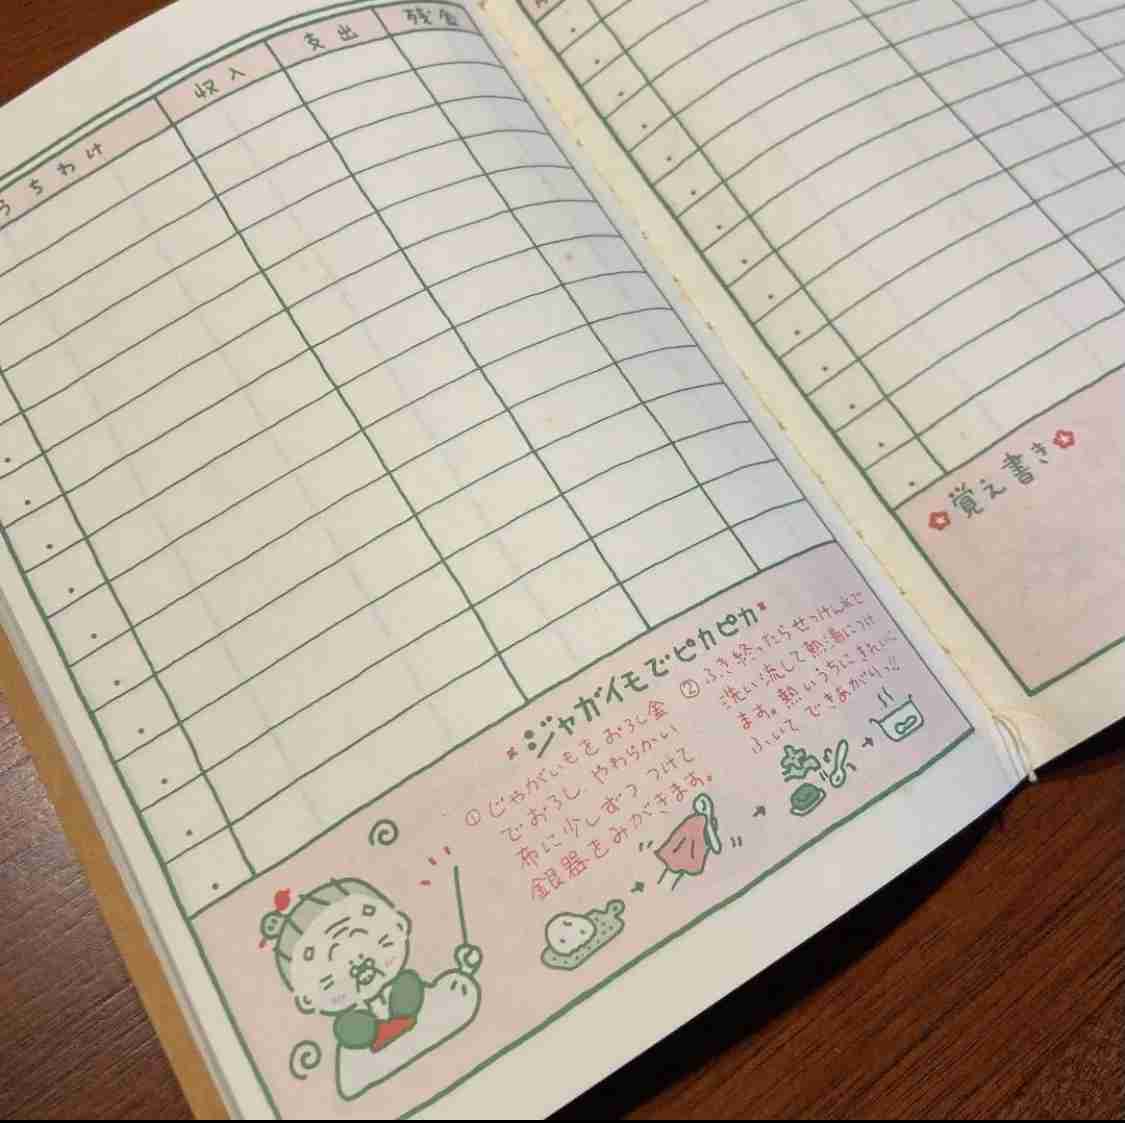 うちわけ 収入 支出 残金
*ジャガイモでピカピカ*
①じゃがいもをおろし金
でおろし、やわらかい
布に少しずつつけて
銀器をみがきます。
②ふき終ったらせっけん水で
洗い流して熱湯につけ
ます。熱いうちにきれいに
ふいてできあがりっ!!
覚え書き